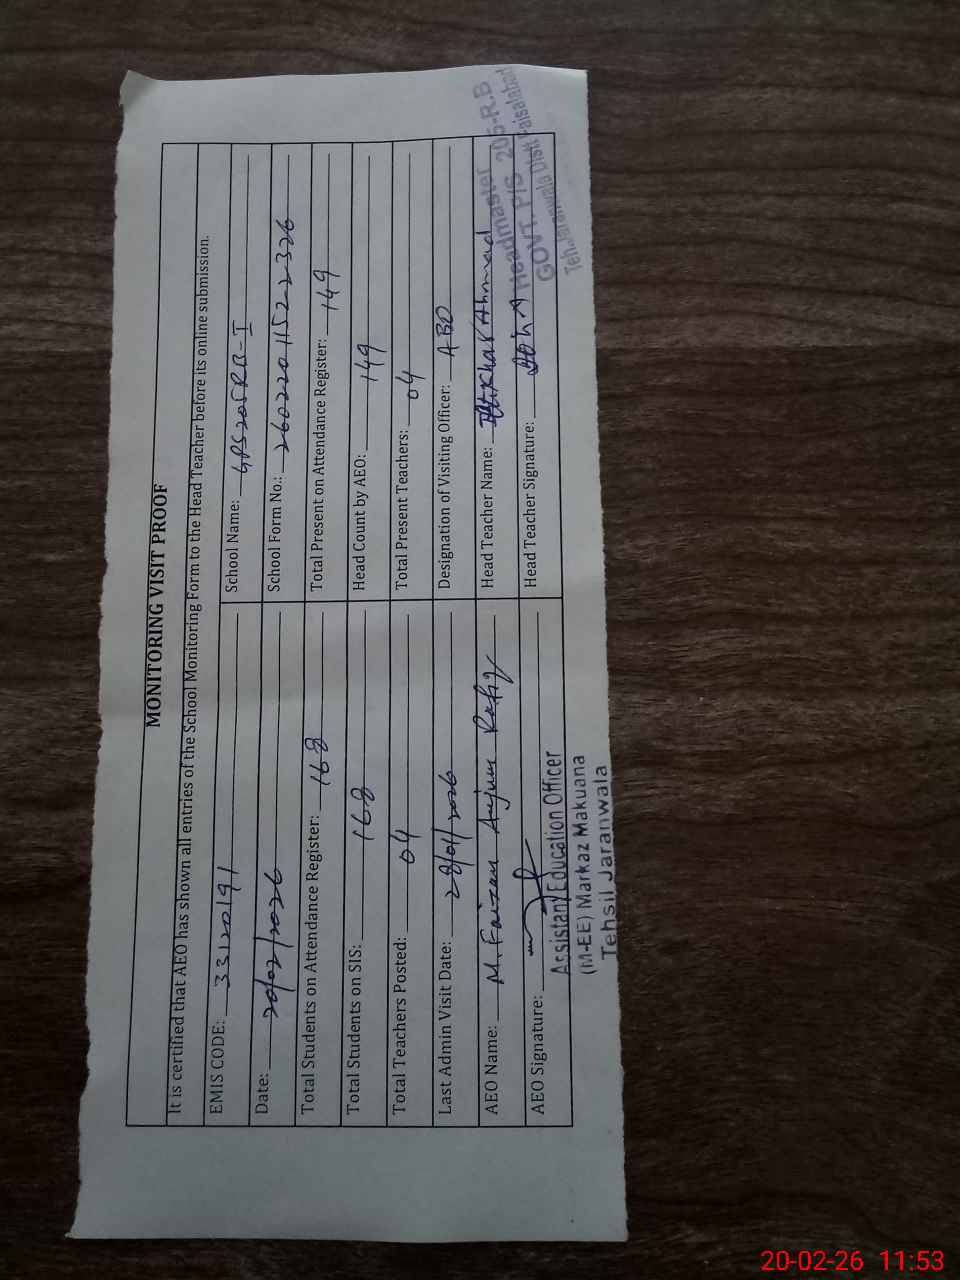 MONITORING VISIT PROOF
It is certified that AEO has shown all entries of the School Monitoring Form to the Head Teacher before its online submission.
EMIS CODE: 33120191 School Name: GPS 205 RB-I
Date: 20/02/2026 School Form No.: 260220115222326
Total Students on Attendance Register: 168 Total Present on Attendance Register: 149
Total Students on SIS: 168 Head Count by AEO: 149
Total Teachers Posted: 04 Total Present Teachers: 04
Last Admin Visit Date: 28/01/2026 Designation of Visiting Officer: AEO
AEO Name: M. Faizan Anjum Rafiq Head Teacher Name: Iftikhar Ahmad
AEO Signature: Head Teacher Signature:
Assistant Education Officer
(M-EE) Markaz Makuana
Tehsil Jaranwala
Headmaster
GOVT. P/S 205-R.B
Teh. Jaranwala Distt Faisalabad
20-02-26 11:53